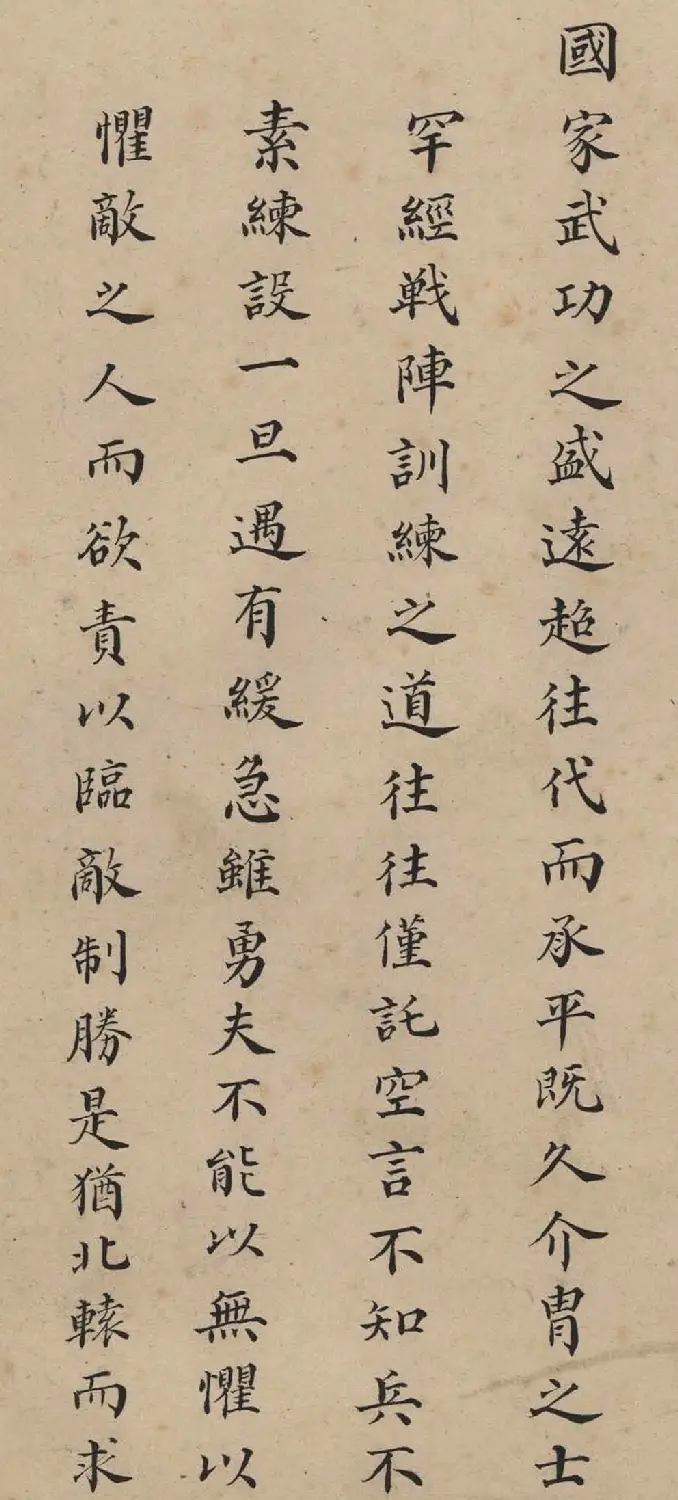 國家武功之盛遠超往代而承平既久介冑之士
罕經戰陣訓練之道往往僅託空言不知兵不
素練設一旦遇有緩急雖勇夫不能以無懼以
懼敵之人而欲責以臨敵制勝是猶北轅而求